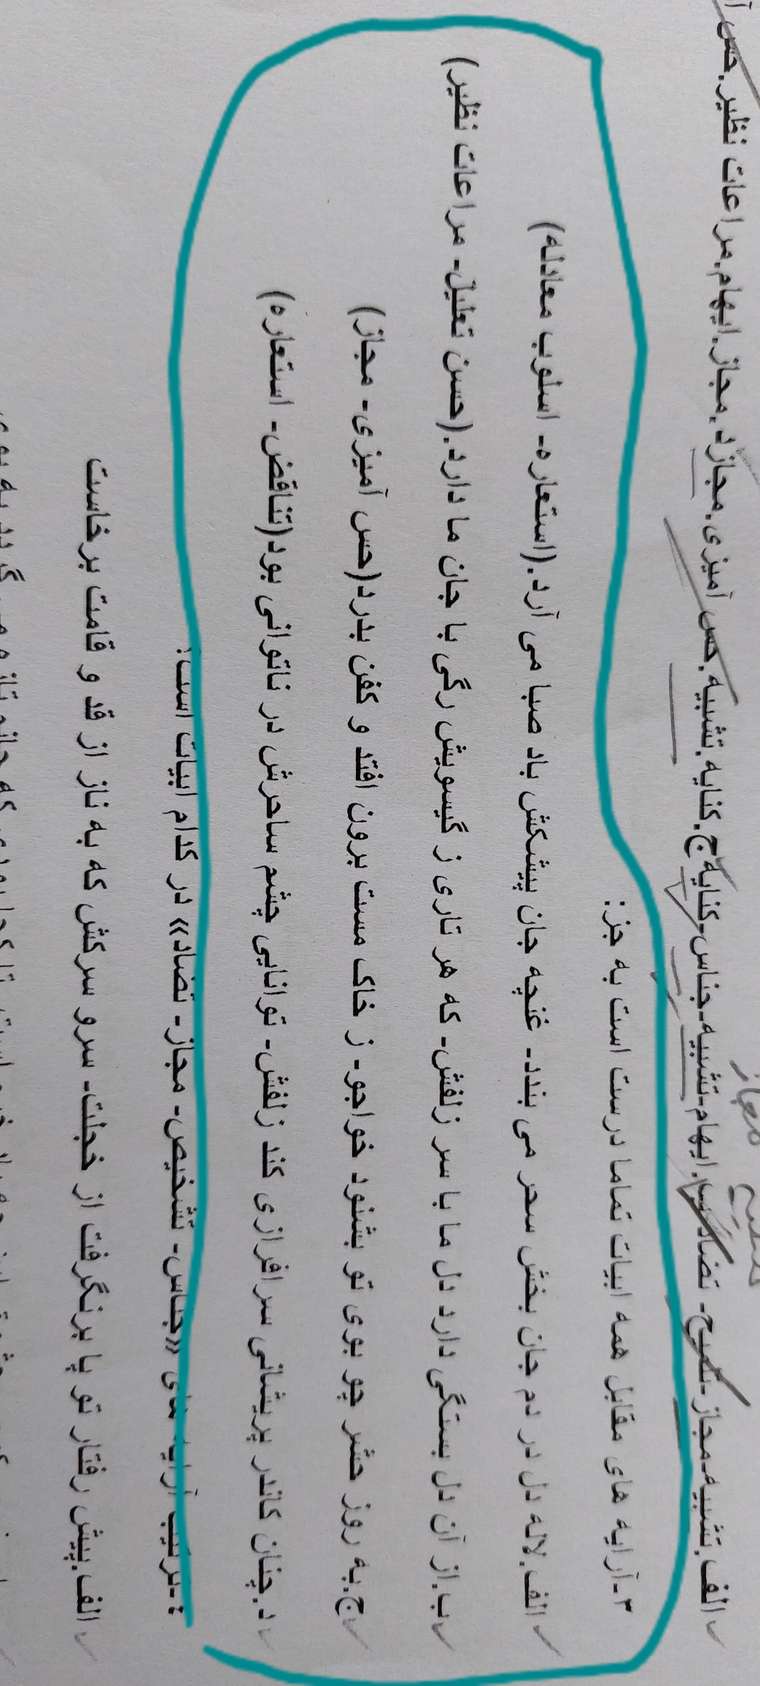 الف.تشبیه.مجاز.تلمیح- تضاد ب.ایهام-تشبیه-جناس-کنایه ج.کنایه.تشبیه.حس آمیزی.مجاز د.مجاز.ایهام.مراعات نظیر.حس
۳-آرایه های مقابل همه ابیات تماما درست است به جز:
الف.لاله دل در دم جان بخش سحر می بندد- غنچه جان پیشکش باد صبا می آرد.(استعاره- اسلوب معادله)
ب.از آن دل بستگی دارد دل ما با سر زلفش- که هر تاری ز گیسویش رگی با جان ما دارد.(حسن تعلیل- مراعات نظیر)
ج.به روز حشر چو بوی تو بشنود خواجو- ز خاک مست برون افتد و کفن بدرد(حس آمیزی- مجاز)
د.چنان کاندر پریشانی سرافرازی کند زلفش- توانایی چشم ساحرش در ناتوانی بود(تناقض- استعاره)
۴-ترکیب آرایه های «جناس- تشخیص- مجاز- تضاد» در کدام ابیات است؟
الف.پیش رفتار تو پا برنگرفت از خجلت- سرو سرکش که به ناز از قد و قامت برخاست